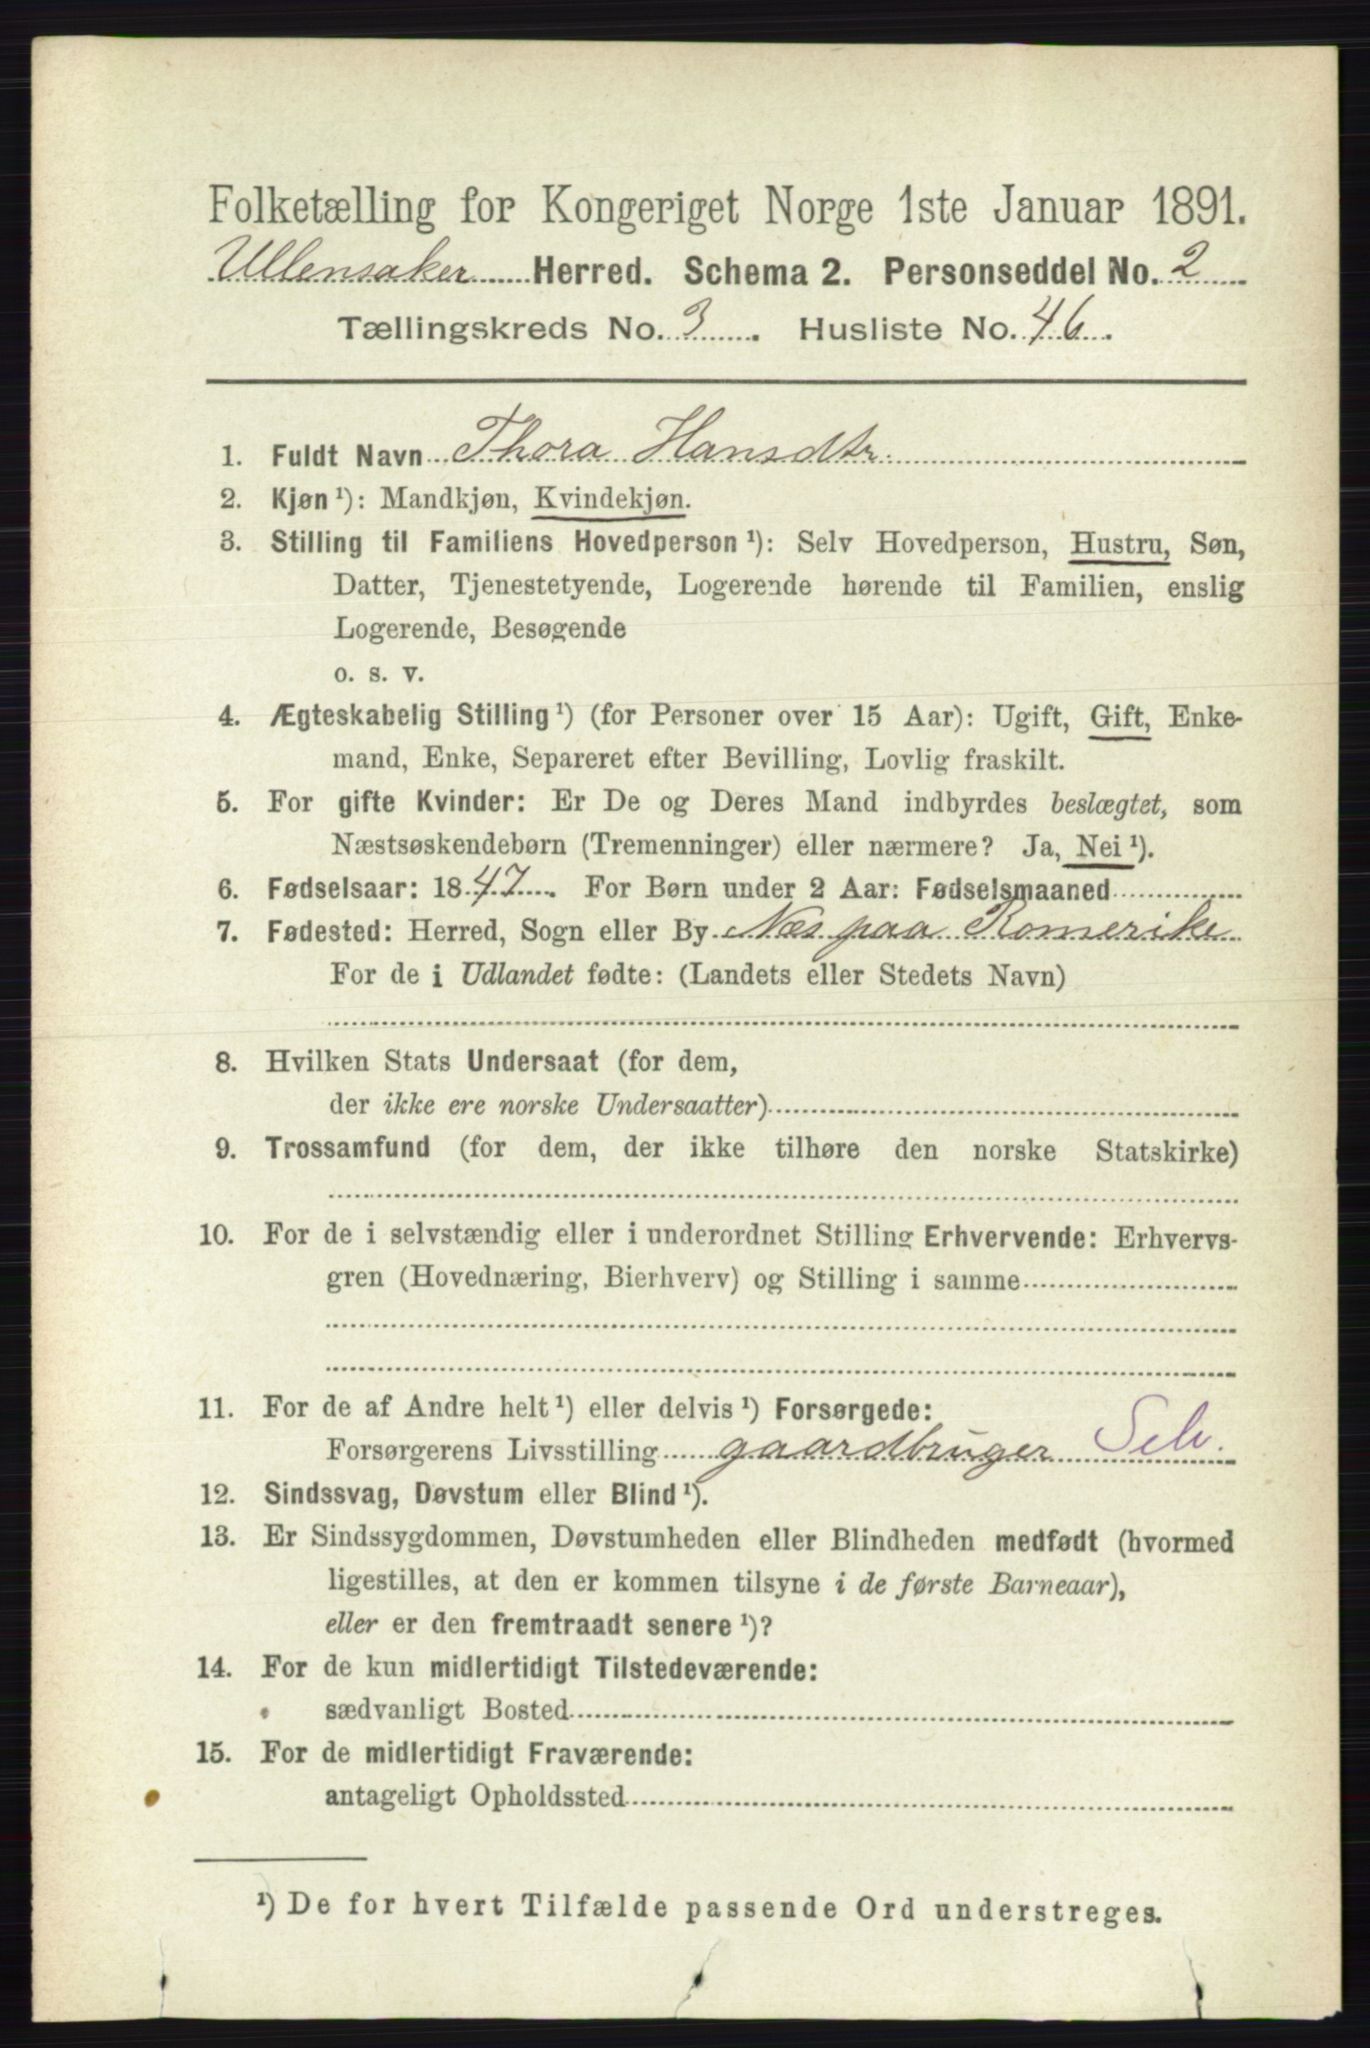 Folketælling for Kongeriget Norge 1ste Januar 1891.
Ullensaker Herred. Schema 2. Personseddel No. 2
Tællingskreds No. 3. Husliste No. 46.
1. Fuldt Navn Thora Hansdtr.
2. Kjøn ¹): Mandkjøn, Kvindekjøn.
3. Stilling til Familiens Hovedperson ¹): Selv Hovedperson, Hustru, Søn,
Datter, Tjenestetyende, Logerende hørende til Familien, enslig
Logerende, Besøgende
o. s. v.
4. Ægteskabelig Stilling ¹) (for Personer over 15 Aar): Ugift, Gift, Enke-
mand, Enke, Separeret efter Bevilling, Lovlig fraskilt.
5. For gifte Kvinder: Er De og Deres Mand indbyrdes beslægtet, som
Næstsøskendebørn (Tremenninger) eller nærmere? Ja, Nei ¹).
6. Fødselsaar: 1847. For Børn under 2 Aar: Fødselsmaaned
7. Fødested: Herred, Sogn eller By Næs paa Romerike
For de i Udlandet fødte: (Landets eller Stedets Navn)
8. Hvilken Stats Undersaat (for dem,
der ikke ere norske Undersaatter)
9. Trossamfund (for dem, der ikke tilhøre den norske Statskirke)
10. For de i selvstændig eller i underordnet Stilling Erhvervende: Erhvervs-
gren (Hovednæring, Bierhverv) og Stilling i samme
11. For de af Andre helt ¹) eller delvis ¹) Forsørgede:
Forsørgerens Livsstilling gaardbruger Selv.
12. Sindssvag, Døvstum eller Blind ¹).
13. Er Sindssygdommen, Døvstumheden eller Blindheden medfødt (hvormed
ligestilles, at den er kommen tilsyne i de første Barneaar),
eller er den fremtraadt senere ¹)?
14. For de kun midlertidigt Tilstedeværende:
sædvanligt Bosted
15. For de midlertidigt Fraværende:
antageligt Opholdssted
¹) De for hvert Tilfælde passende Ord understreges.